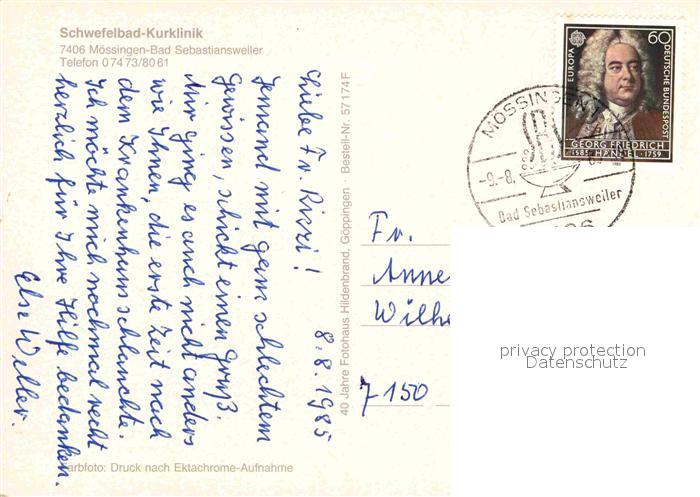 Schwefelbad-Kurklinik
7406 Mössingen-Bad Sebastiansweiler
Telefon 07473/8061
8.8.1985
Liebe Fr. Rizzi!
Jemand mit ganz schlechtem
Gewissen, schickt einen Gruß.
Mir ging es auch nicht anders
wie Ihnen, die erste Zeit nach
dem Krankenhaus schlauchte.
Ich möchte mich nochmal recht
herzlich für Ihre Hilfe bedanken.
Else Weller.
Farbfoto: Druck nach Ektachrome-Aufnahme
40 Jahre Fotohaus Hildenbrand, Göppingen · Bestell-Nr. 57174F
EUROPA
60
DEUTSCHE BUNDESPOST
GEORG FRIEDRICH
1585 HÄNDEL 1759
MÖSSINGEN 1
-9.-8.
Bad Sebastiansweiler
Fr.
Anne
Wilhe
7150
privacy protection
Datenschutz